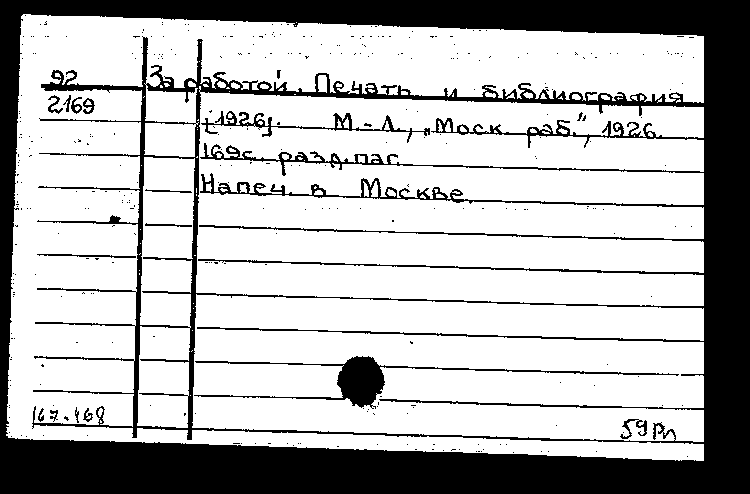 92 За работой. Печать и библиография
2169
[1926]. М.-Л., „Моск. раб.", 1926.
169с. разд. паг.
Напеч. в Москве.
167.468 59Рл